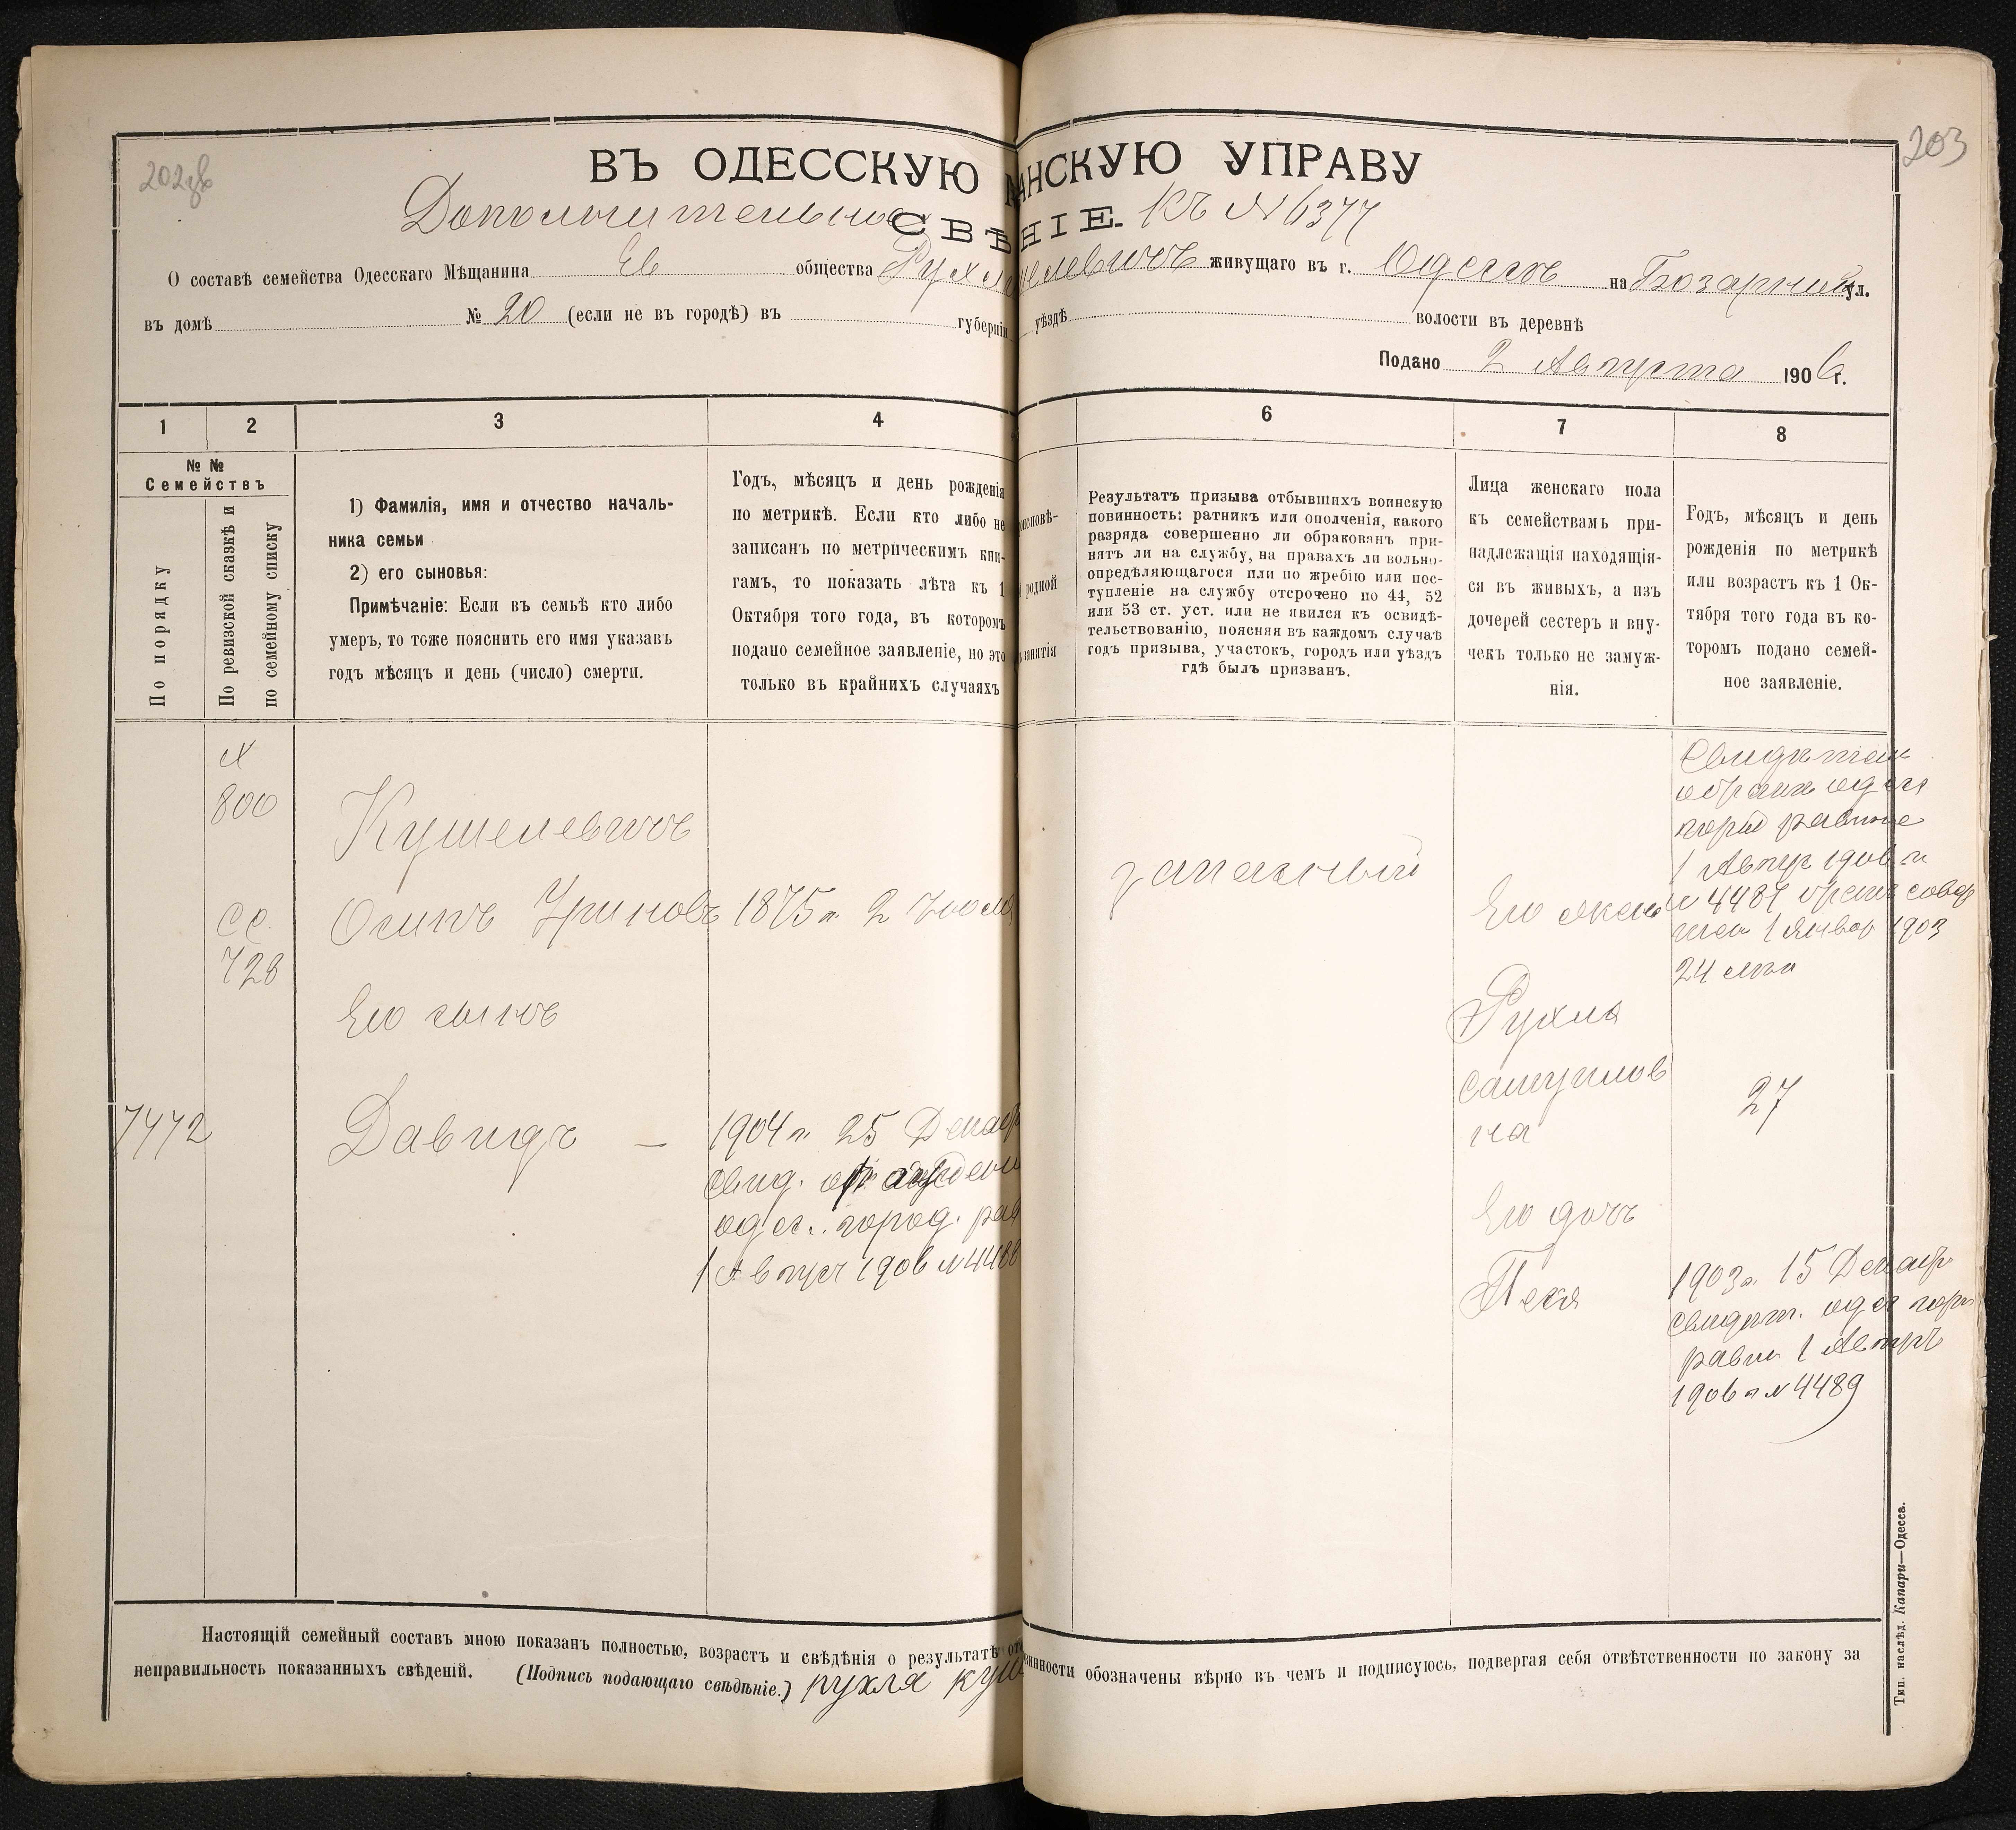 202 зв
203
ВЪ ОДЕССКУЮ АНСКУЮ УПРАВУ
Дополнительное СВѢ НІЕ. Къ № 6377
О составѣ семейства Одесскаго Мѣщанина Ев общества Рухл шелевичъ живущаго въ г. Одессѣ на Базарной ул.
въ домѣ № 20 (если не въ городѣ) въ губерніи уѣздѣ волости въ деревнѣ
Подано 2 Августа 1906 г.
1 2 3 4 6 7 8
№ № Семействъ
По порядку
По ревизской сказкѣ и
по семейному списку
1) Фамилія, имя и отчество началь-
ника семьи
2) его сыновья:
Примѣчаніе: Если въ семьѣ кто либо
умеръ, то тоже пояснить его имя указавъ
годъ мѣсяцъ и день (число) смерти.
Годъ, мѣсяцъ и день рожденія
по метрикѣ. Если кто либо не
записанъ по метрическимъ кни-
гамъ, то показать лѣта къ 1
Октября того года, въ которомъ
подано семейное заявленіе, но это
только въ крайнихъ случаяхъ
исповѣ-
родной
занятія
Результатъ призыва отбывшихъ воинскую
повинность: ратникъ или ополченія, какого
разряда совершенно ли обракованъ при-
нятъ ли на службу, на правахъ ли вольно-
опредѣляющагося или по жребію или пос-
тупленіе на службу отсрочено по 44, 52
или 53 ст. уст. или не явился къ освидѣ-
тельствованію, поясняя въ каждомъ случаѣ
годъ призыва, участокъ, городъ или уѣздъ
гдѣ былъ призванъ.
Лица женскаго пола
къ семействамъ при-
надлежащія находящія-
ся въ живыхъ, а изъ
дочерей сестеръ и вну-
чекъ только не замуж-
нія.
Годъ, мѣсяцъ и день
рожденія по метрикѣ
или возрастъ къ 1 Ок-
тября того года въ ко-
торомъ подано семей-
ное заявленіе.
№
800
СС.
728
7472
Кушелевичъ
Осипъ 1875 г. 2 Іюля
Его сынъ
Давидъ — 1904 г. 25 Декабр
свид.
одес. город. рав
1 Авгус 1906 № 4488
запасный
Его жена
Рухля
Самуилов
на
Его дочь
Песя
одес
город равине
1 Авгус 1906 г
№ 4487 брак совер
шен 1 Январ 1903
24 лѣт
27
1903 г. 15 Декабр
свидѣт. одес горо
равин 1 Авгус
1906 г № 4489
Настоящій семейный составъ мною показанъ полностью, возрастъ и свѣдѣнія о результатѣ от винности обозначены вѣрно въ чемъ и подписуюсь, подвергая себя отвѣтственности по закону за
неправильность показанныхъ свѣденій. (Подпись подающаго свѣдѣніе.) рухля куш
Тип. наслѣд. Капари—Одесса.